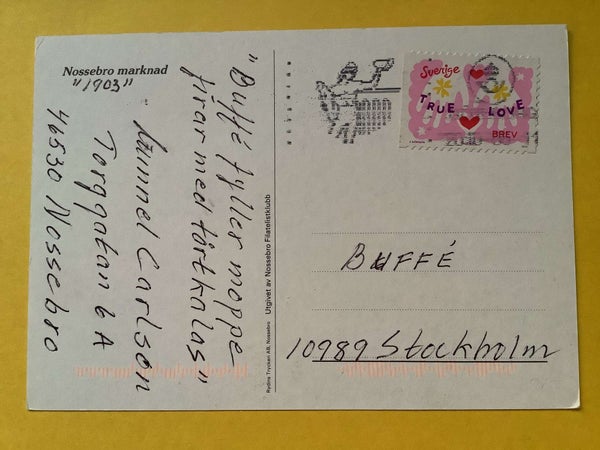 Nossebro marknad
"1703"
"Buffé fyller moppe
firar med tårtkalas"
Gunnel Carlson
Torggatan 6 A
46530 Nossebro
Utgivet av Nossebro Filatelistklubb
Rydins Tryckeri AB, Nossebro
Sverige
TRUE LOVE
BREV
BUFFÉ
10989 Stockholm